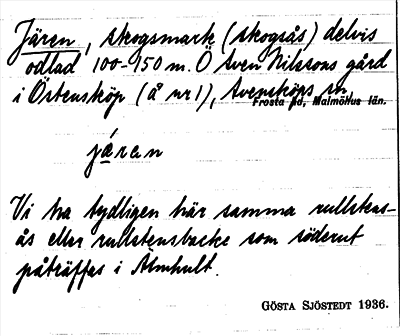 Jären, skogsmark (skogsås) delvis
odlad 100-150 m. Ö Sven Nilssons gård
i Östensköp (å nr 1), Svensköps sn,
Frosta hd, Malmöhus län.
järan
Vi ha tydligen här samma rullstens-
ås eller rullstensbacke som söderut
påträffas i Älmhult.
GÖSTA SJÖSTEDT 1936.